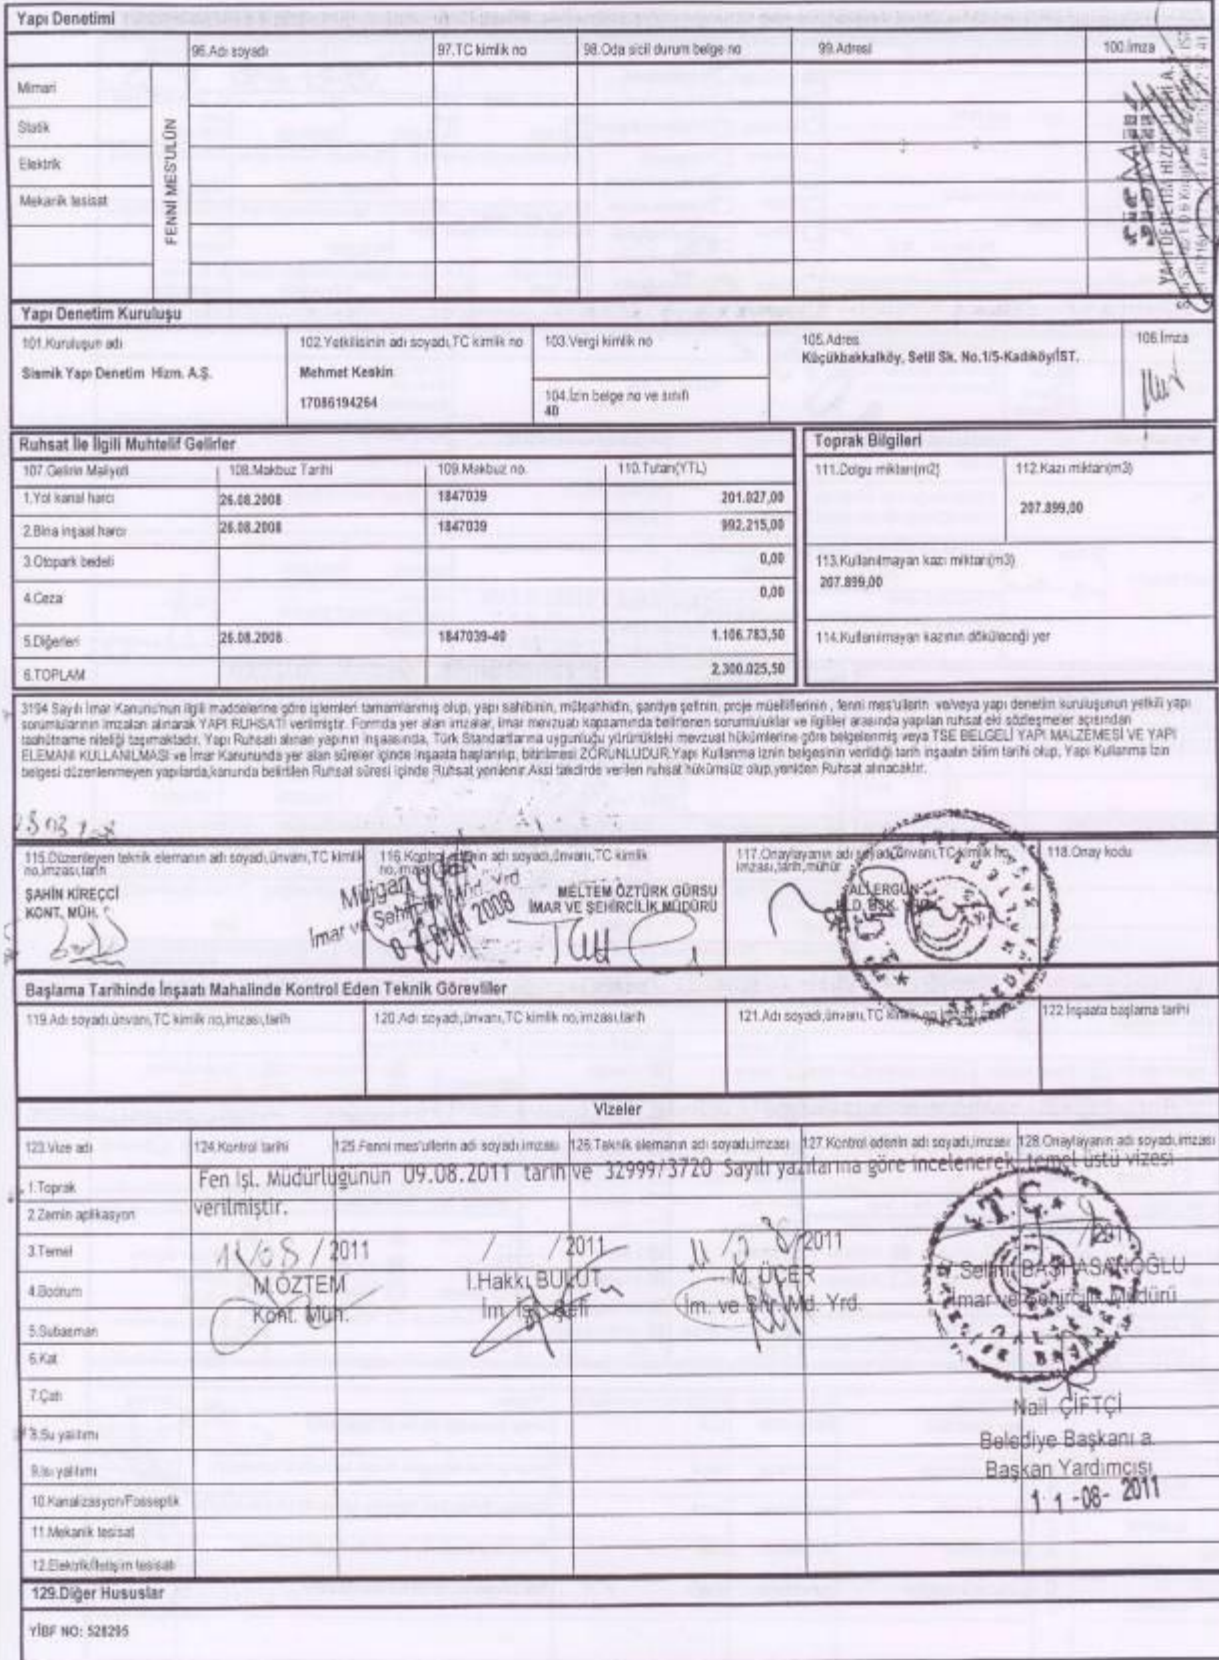 Yapı Denetimi
96.Adı soyadı 97.TC kimlik no 98.Oda sicil durum belge no 99.Adresi 100.İmza
FENNİ MES'ULÜN
Mimari
Statik
Elektrik
Mekanik tesisat
YAPI DENETİM
Yapı Denetim Kuruluşu
101.Kuruluşun adı 102.Yetkilisinin adı soyadı,TC kimlik no 103.Vergi kimlik no 105.Adres 106.İmza
Sismik Yapı Denetim Hizm. A.Ş. Mehmet Keskin Küçükbakkalköy, Setil Sk. No.1/5-Kadıköy/İST.
17086194264 104.İzin belge no ve sınıfı
40
Ruhsat İle İlgili Muhtelif Gelirler
107.Gelirin Maliyeti 108.Makbuz Tarihi 109.Makbuz no. 110.Tutarı(YTL)
1.Yol kanal harcı 26.08.2008 1847039 201.027,00
2.Bina inşaat harcı 26.08.2008 1847039 992.215,00
3.Otopark bedeli 0,00
4.Ceza 0,00
5.Diğerleri 26.08.2008 1847039-40 1.106.783,50
6.TOPLAM 2.300.025,50
Toprak Bilgileri
111.Dolgu miktarı(m2) 112.Kazı miktarı(m3)
207.899,00
113.Kullanılmayan kazı miktarı(m3)
207.899,00
114.Kullanılmayan kazının döküleceği yer
3194 Sayılı İmar Kanunu'nun ilgili maddelerine göre işlemleri tamamlanmış olup, yapı sahibinin, müteahhidin, şantiye şefinin, proje müelliflerinin , fenni mes'ullerin ve/veya yapı denetim kuruluşunun yetkili yapı
sorumlularının imzaları alınarak YAPI RUHSATI verilmiştir. Formda yer alan imzalar, imar mevzuatı kapsamında belirlenen sorumluluklar ve ilgililer arasında yapılan ruhsat eki sözleşmeler açısından
taahütname niteliği taşımaktadır. Yapı Ruhsatı alınan yapının inşaasında, Türk Standartlarına uygunluğu yürürlükteki mevzuat hükümlerine göre belgelenmiş veya TSE BELGELİ YAPI MALZEMESİ VE YAPI
ELEMANI KULLANILMASI ve İmar Kanununda yer alan süreler içinde inşaata başlanılıp, bitirilmesi ZORUNLUDUR.Yapı Kullanma İznin belgesinin verildiği tarih inşaatın bitim tarihi olup, Yapı Kullanma İzin
belgesi düzenlenmeyen yapılarda,kanunda belirtilen Ruhsat süresi içinde Ruhsat yenilenir.Aksi takdirde verilen ruhsat hükümsüz olup,yeniden Ruhsat alınacaktır.
115.Düzenleyen teknik elemanın adı soyadı,ünvanı,TC kimlik
no,imzası,tarih
ŞAHİN KİREÇCİ
KONT. MÜH.
116.Kontrol edenin adı soyadı,ünvanı,TC kimlik
Müjgan
İmar ve Şehircilik Müd. Yrd
2008
MELTEM ÖZTÜRK GÜRSU
İMAR VE ŞEHİRCİLİK MÜDÜRÜ
117.Onaylayanın adı soyadı,ünvanı,TC kimlik no,
imzası,tarih,mühür
ALİ ERGÜN
118.Onay kodu
Başlama Tarihinde İnşaatı Mahalinde Kontrol Eden Teknik Görevliler
119.Adı soyadı,ünvanı,TC kimlik no,imzası,tarih 120.Adı soyadı,ünvanı,TC kimlik no,imzası,tarih 121.Adı soyadı,ünvanı,TC kimlik no,imzası,tarih 122.İnşaata başlama tarihi
Vizeler
123.Vize adı 124.Kontrol tarihi 125.Fenni mes'ullerin adı soyadı,imzası 126.Teknik elemanın adı soyadı,imzası 127.Kontrol edenin adı soyadı,imzası 128.Onaylayanın adı soyadı,imzası
Fen İşl. Müdürlüğünün 09.08.2011 tarih ve 32999/3720 Sayılı yazılarına göre incelenerek, temel üstü vizesi
verilmiştir.
1.Toprak
2.Zemin aplikasyon
3.Temel
4.Bodrum
5.Subasman
6.Kat
7.Çatı
8.Su yalıtımı
9.Isı yalıtımı
10.Kanalizasyon/Fosseptik
11.Mekanik tesisat
12.Elektrik/İletişim tesisatı
11/08/2011 / /2011 11/08/2011 /2011
M.ÖZTEM İ.Hakkı BULUT M. ÜÇER Selim BAŞHASANOĞLU
Kont. Müh. İm. İşl. Şefi İm. ve Şhr. Md. Yrd. İmar ve Şehircilik Müdürü
T.C.
Nail ÇİFTÇİ
Belediye Başkanı a.
Başkan Yardımcısı
11-08-2011
129.Diğer Hususlar
YİBF NO: 528295